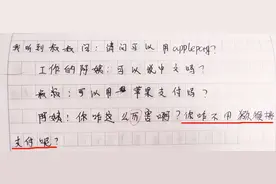 我听到叔叔问：请问可以用applepay?
工作的阿姨：可以说中文吗？
叔叔：可以用苹果支付吗？
阿姨：你咋这么厉害啊？你咋不用猕猴桃
支付呢？